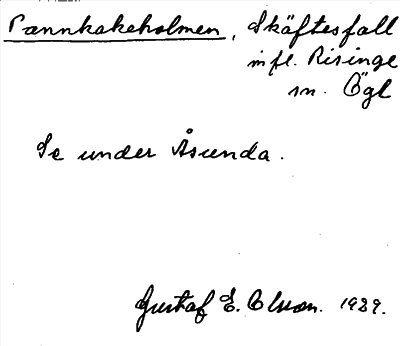 Pannkakeholmen, Skäftesfall
mfl. Risinge
sn. Ögl
Se under Åsunda.
Gustaf E. Olsson. 1929.